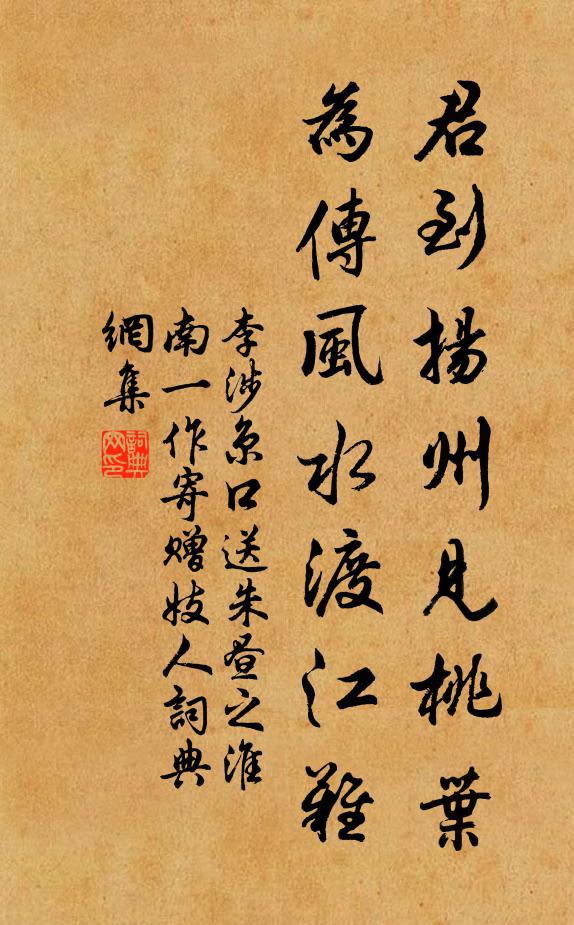 君到揚州見桃葉
為傳風水渡江難
李涉京口送朱晝之淮
南一作寄贈妓人詞典
網集
詞典網印